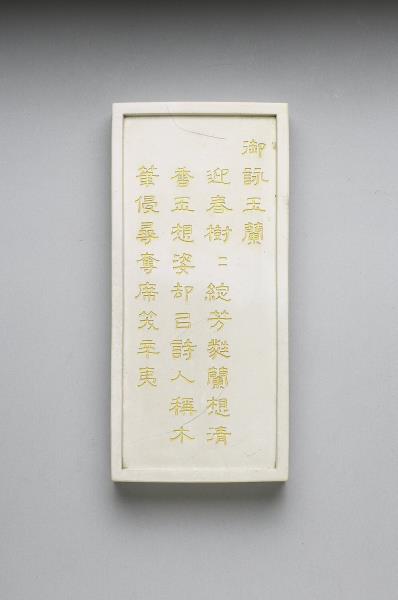 御詠玉蘭
迎春樹〻綻芳蕤蘭想清
香玉想姿却已詩人稱木
筆侵尋奪席笑辛夷